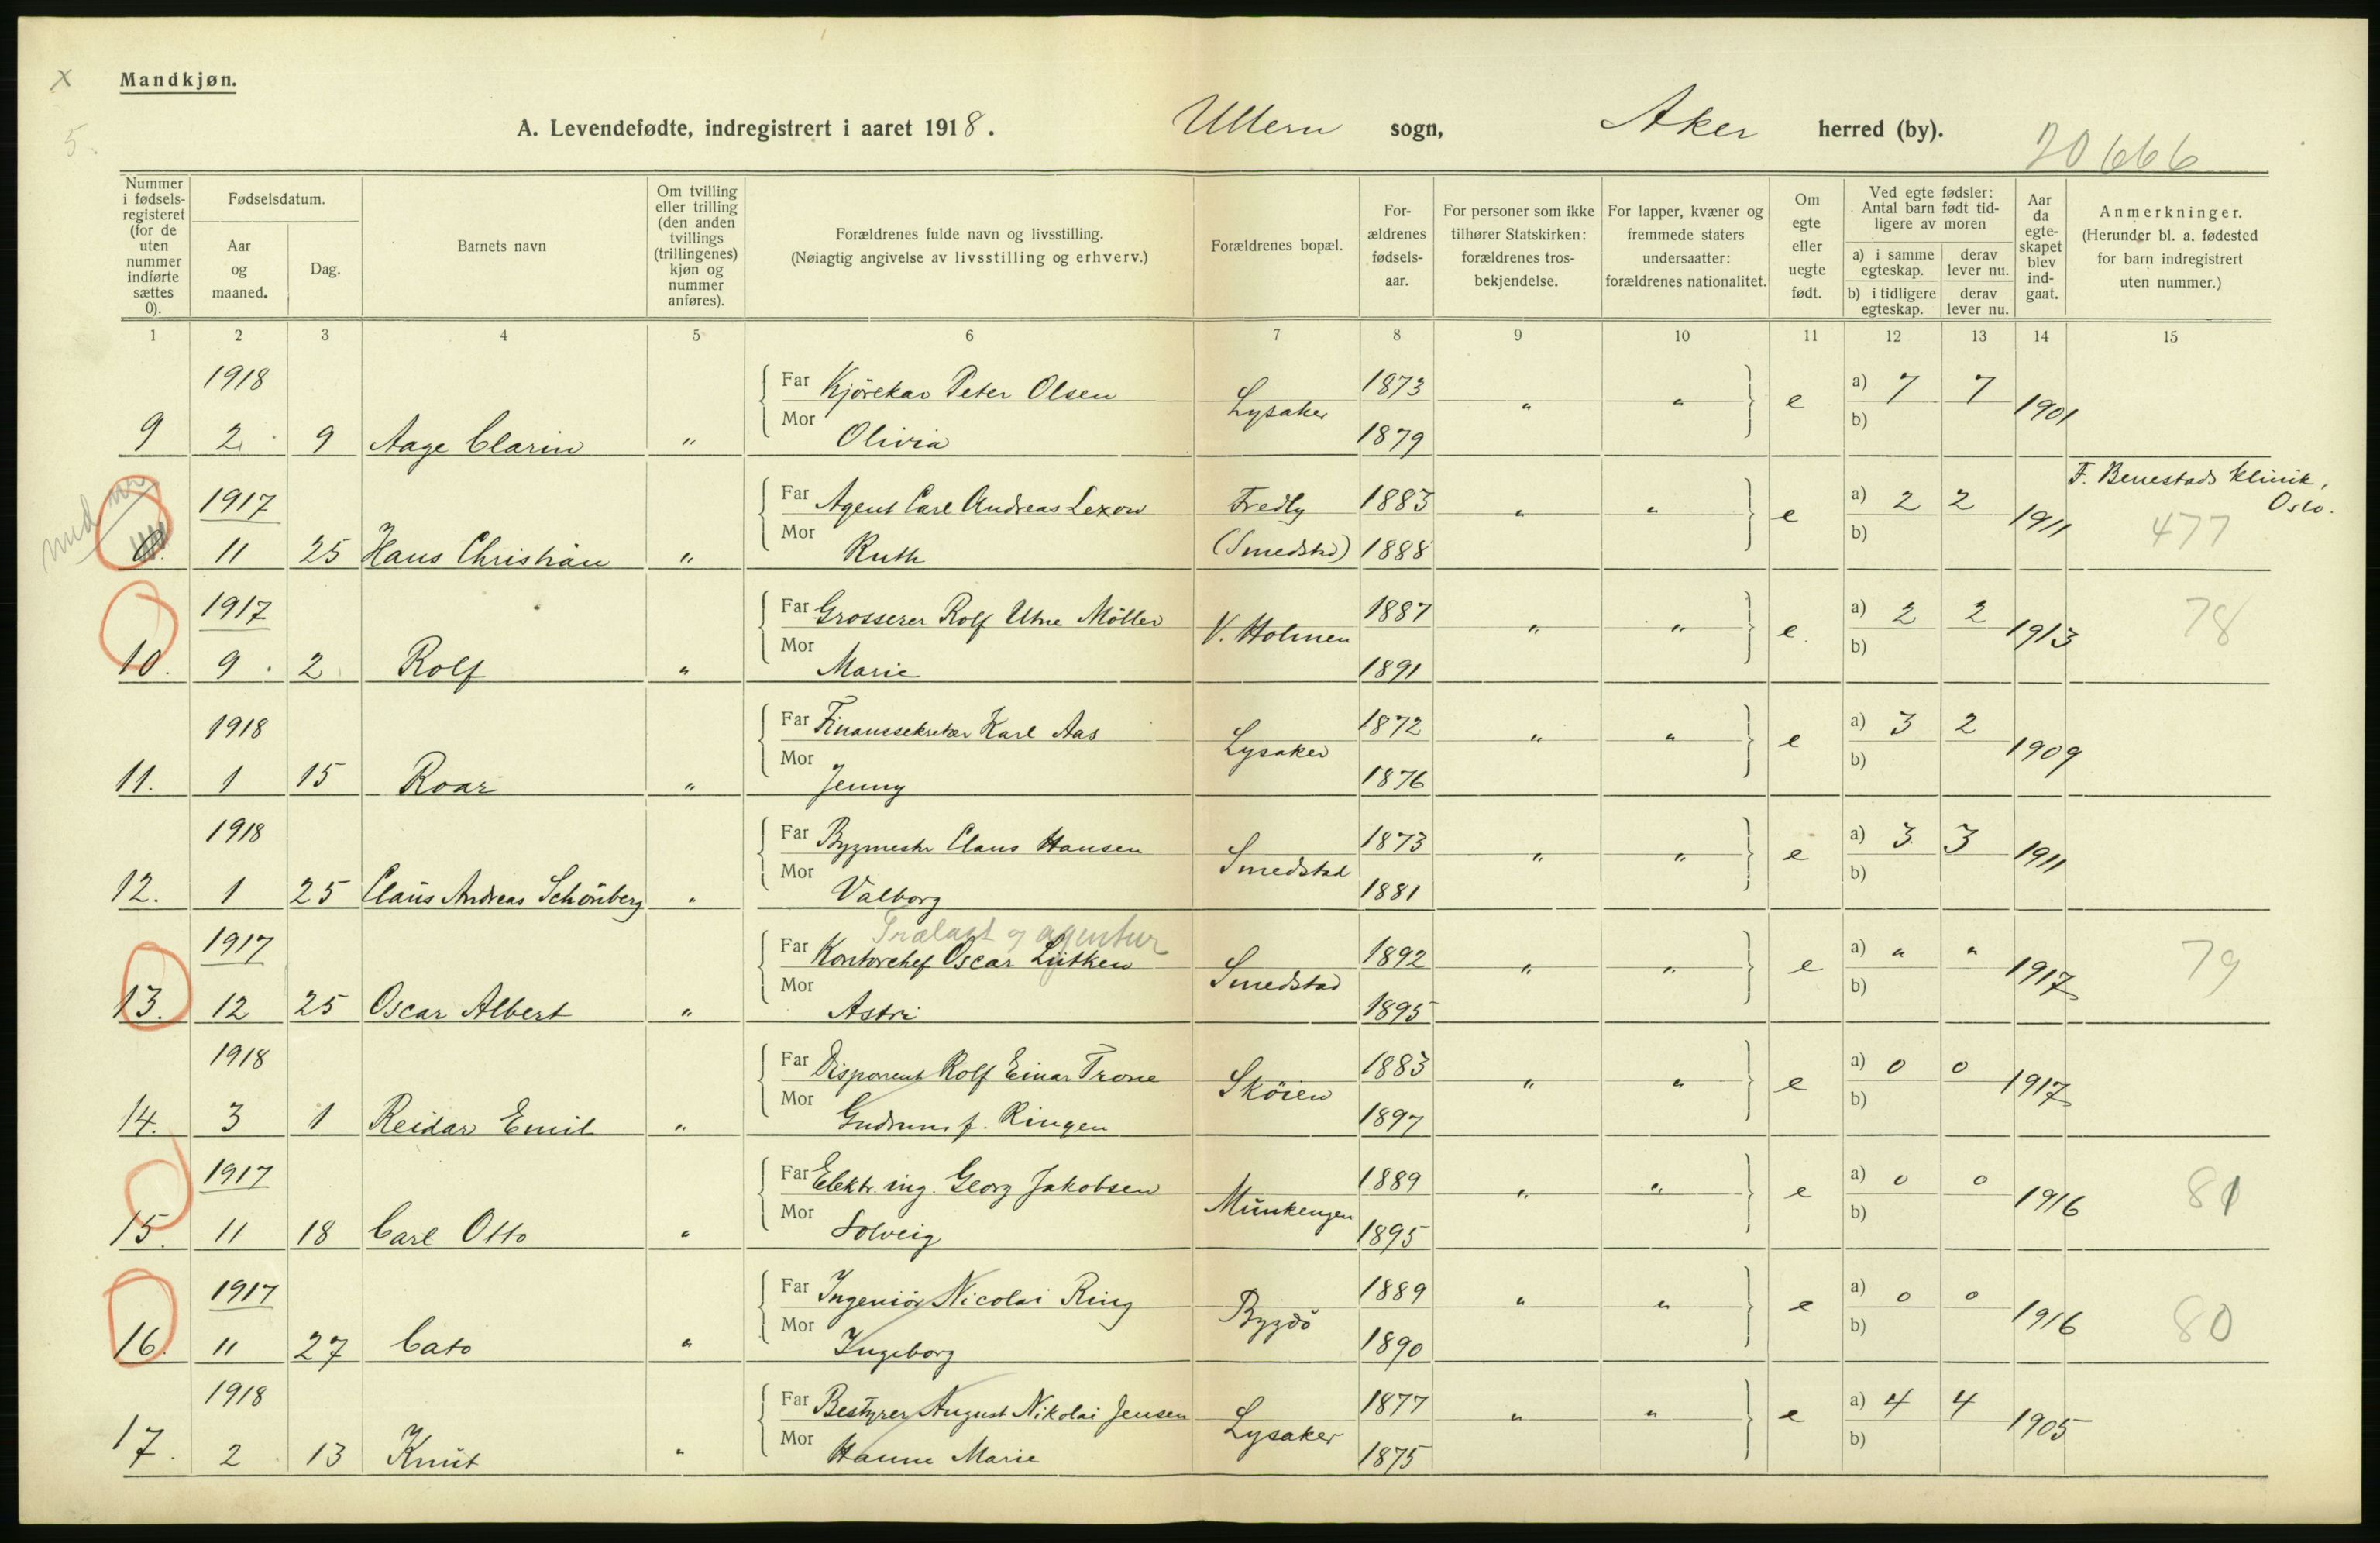 x
Mandkjøn.
5.
A. Levendefødte, indregistrert i aaret 1918. Ullern sogn, Aker herred (by).
20666
Nummer i fødselsregisteret (for de uten nummer indførte sættes 0).
Fødselsdatum.
Aar og maaned.
Dag.
Barnets navn
Om tvilling eller trilling (den anden tvillings (trillingenes) kjøn og nummer anføres).
Forældrenes fulde navn og livsstilling.
(Nøiagtig angivelse av livsstilling og erhverv.)
Forældrenes bopæl.
Forældrenes fødselsaar.
For personer som ikke tilhører Statskirken: forældrenes trosbekjendelse.
For lapper, kvæner og fremmede staters undersaatter: forældrenes nationalitet.
Om egte eller uegte født.
Ved egte fødsler: Antal barn født tidligere av moren
a) i samme egteskap. derav lever nu.
b) i tidligere egteskap. derav lever nu.
Aar da egteskapet blev indgaat.
Anmerkninger.
(Herunder bl. a. fødested for barn indregistrert uten nummer.)
1 2 3 4 5 6 7 8 9 10 11 12 13 14 15
1918 Far Kjörekar Peter Olsen Lysaker 1873 " " e a) 7 7 1901
9 2. 9 Aage Clarin " Mor Olivia 1879 b)
F. Benestads klinik, Oslo.
1917 Far Agent Carl Andreas Lexow Fredly 1883 " " e a) 2 2 1911
11 25 Hans Christian " Mor Ruth (Smedstad) 1888 b) 477
1917 Far Grosserer Rolf Utne Möller V. Holmen 1887 " " e. a) 2 2 1913 78
10. 9. 2 Rolf " Mor Marie 1891 b)
1918 Far Finanssekretær Karl Aas Lysaker 1872 " " e a) 3 2 1909
11. 1 15 Roar " Mor Jenny 1876 b)
1918 Far Bygmestr Claus Hansen Smedstad 1873 " " e a) 3. 3 1911
12. 1 25 Claus Andreas Schönberg " Mor Valborg 1881 b)
Trælast og agentur
1917 Far Kontorchef Oscar Lütken Smedstad 1892 " " e a) " " 1917 79
13. 12 25 Oscar Albert " Mor Astri 1895 b)
1918 Far Disponent Rolf Einar Trone Sköien 1883 " " e a) 0 0 1917
14. 3 1 Reidar Emil " Mor Gudrun f. Ringen 1897 b)
1917 Far Elektr. ing. Georg Jakobsen Munkengen 1889 " " e a) 0 0 1916 81
15. 11 18 Carl Otto " Mor Solveig 1895 b)
1917 Far Ingeniör Nicolai Ring Bygdö 1889 " " e a) 0 0 1916 80
16. 11 27 Cato " Mor Ingeborg 1890 b)
1918 Far Bestyrer August Nikolai Jensen Lysaker 1877 " " e a) 4 4 1905
17. 2 13 Knut " Mor Hanne Marie 1875 b)